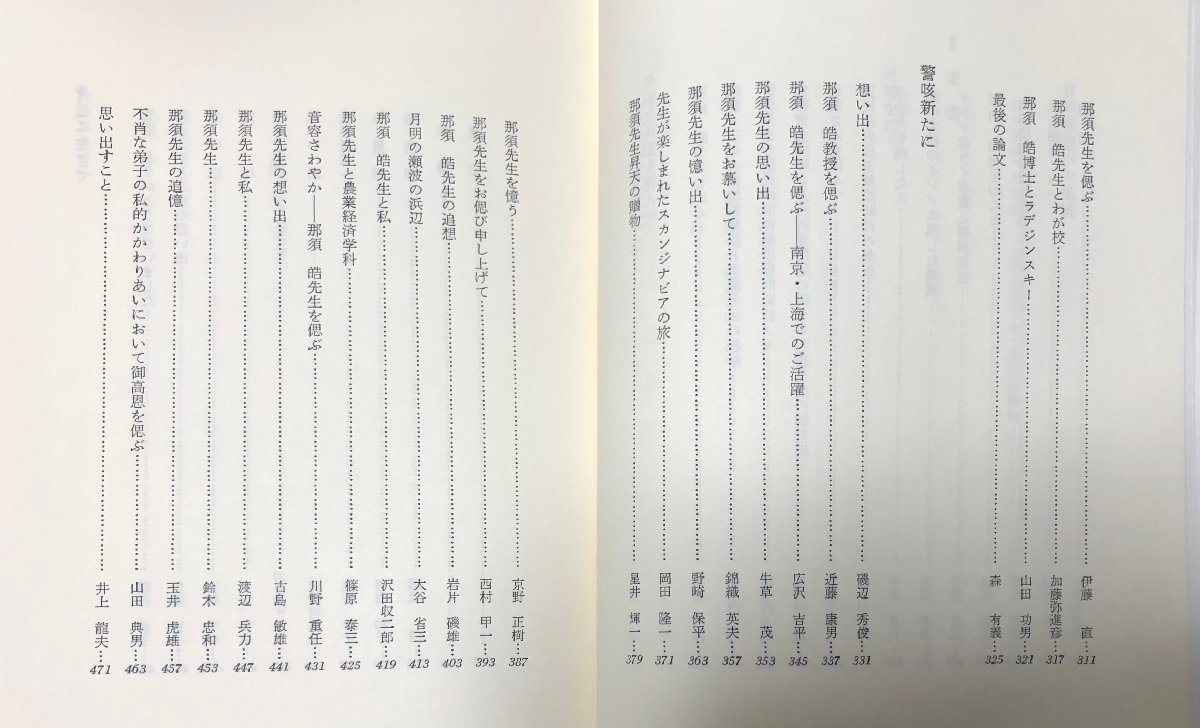 那須先生を偲ぶ…伊藤 直…311
那須 皓先生とわが校…加藤弥進彦…317
那須 皓博士とラデジンスキー…山田 功男…321
最後の論文…森 有義…325
警咳新たに
想い出…磯辺 秀俊…331
那須 皓教授を偲ぶ…近藤 康男…337
那須 皓先生を偲ぶ――南京・上海でのご活躍…広沢 吉平…345
那須先生の思い出…牛草 茂…353
那須先生をお慕いして…錦織 英夫…357
那須先生の憶い出…野崎 保平…363
先生が楽しまれたスカンジナビアの旅…岡田 隆一…371
那須先生昇天の贈物…星井 輝一…379
那須先生を憶う…京野 正樹…387
那須先生をお偲び申し上げて…西村 甲一…393
那須 皓先生の追想…岩片 磯雄…403
月明の瀬波の浜辺…大谷 省三…413
那須 皓先生と私…沢田収二郎…419
那須先生と農業経済学科…篠原 泰三…425
音容さわやか――那須 皓先生を偲ぶ…川野 重任…431
那須先生の想い出…古島 敏雄…441
那須先生と私…渡辺 兵力…447
那須先生…鈴木 忠和…453
那須先生の追憶…玉井 虎雄…457
不肖な弟子の私的かかわりあいにおいて御高恩を偲ぶ…山田 典男…463
思い出すこと…井上 龍夫…471